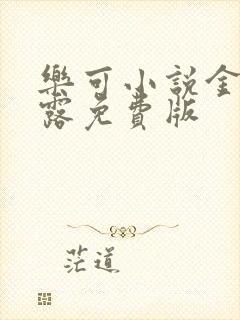 樂可小說金
露免費版
茫道